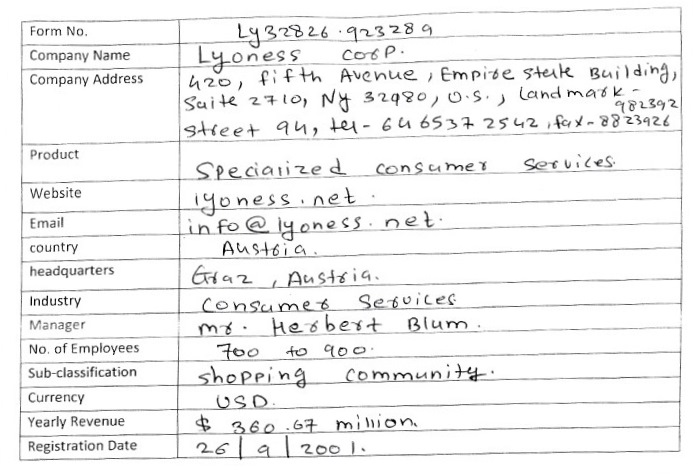 Form No. Ly32826.923289
Company Name Lyoness corp.
Company Address 420, fifth Avenue, Empire state Building,
Suite 2710, Ny 32980, U.S., landmark-
982392
Street 94, tel- 646537 2542, fax- 8823926
Product Specialized consumer services.
Website lyoness.net.
Email info@lyoness.net.
country Austria.
headquarters Graz, Austria.
Industry Consumer Services
Manager mr. Herbert Blum.
No. of Employees 700 to 900.
Sub-classification shopping community.
Currency USD.
Yearly Revenue $ 360.67 million.
Registration Date 26/9/2001.